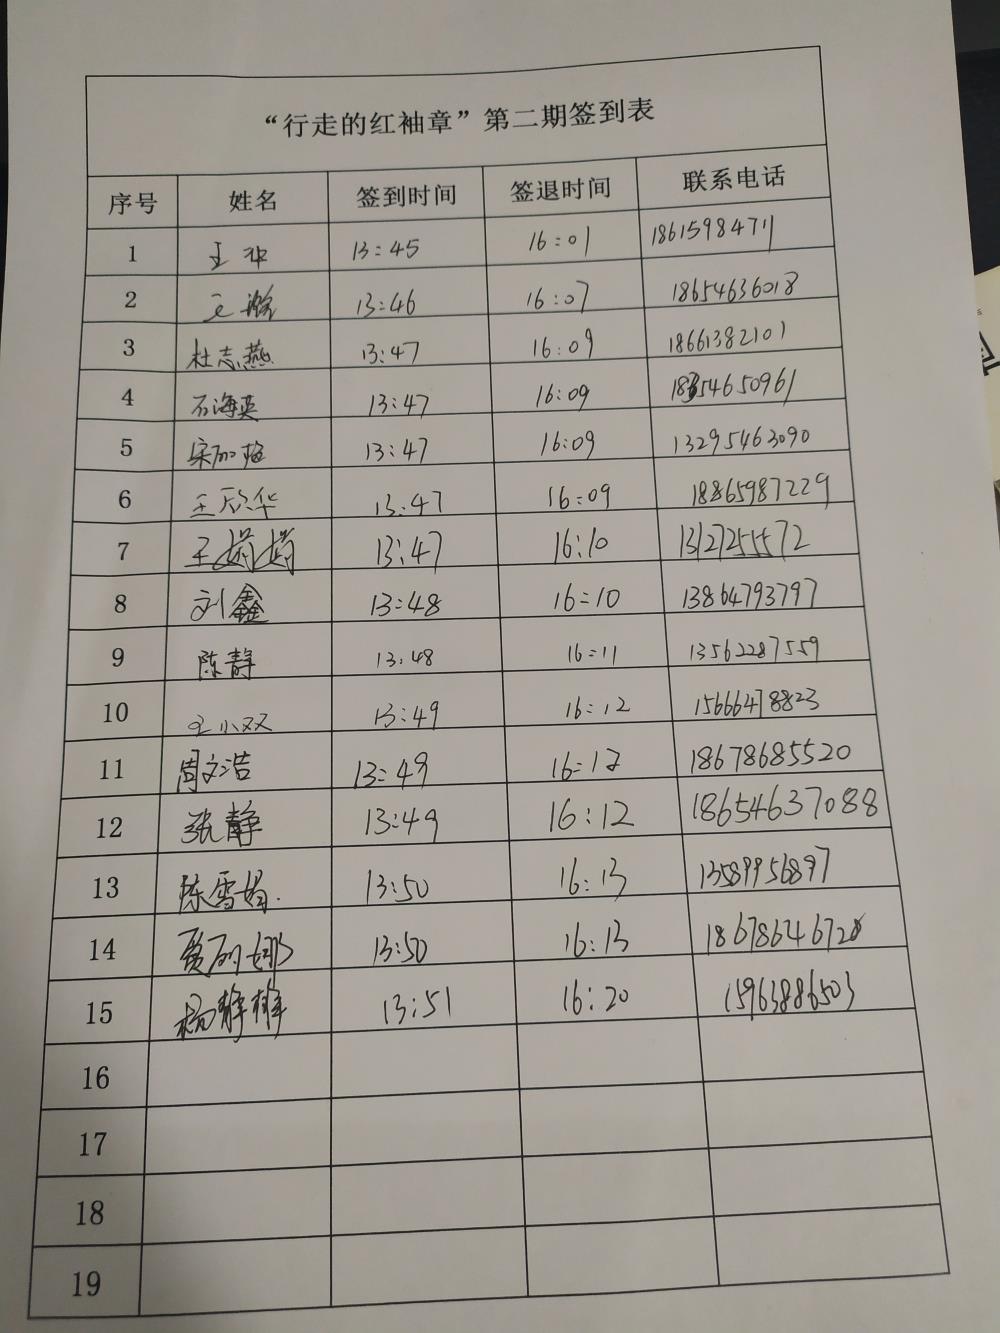 “行走的红袖章”第二期签到表
序号 姓名 签到时间 签退时间 联系电话
1 王冲 13:45 16:01 18615984711
2 王 13:46 16:07 18654636018
3 杜志燕 13:47 16:09 18661382101
4 石海英 13:47 16:09 18354650961
5 宋 13:47 16:09 13295463090
6 王欣华 13:47 16:09 18865987229
7 王娟娟 13:47 16:10 13127255572
8 刘鑫 13:48 16:10 13864793797
9 陈静 13:48 16:11 13562287559
10 王小双 13:49 16:12 15666478823
11 周文浩 13:49 16:12 18678685520
12 张静 13:49 16:12 18654637088
13 陈雪娟. 13:50 16:13 13589956897
14 贾丽娜 13:50 16:13 18678646720
15 杨静静 13:51 16:20 15963886503
16
17
18
19